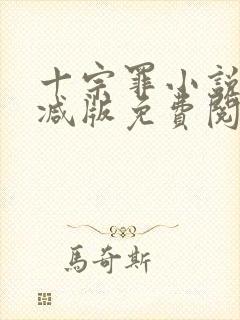 十宗罪小說
減版免費閱
馬奇斯